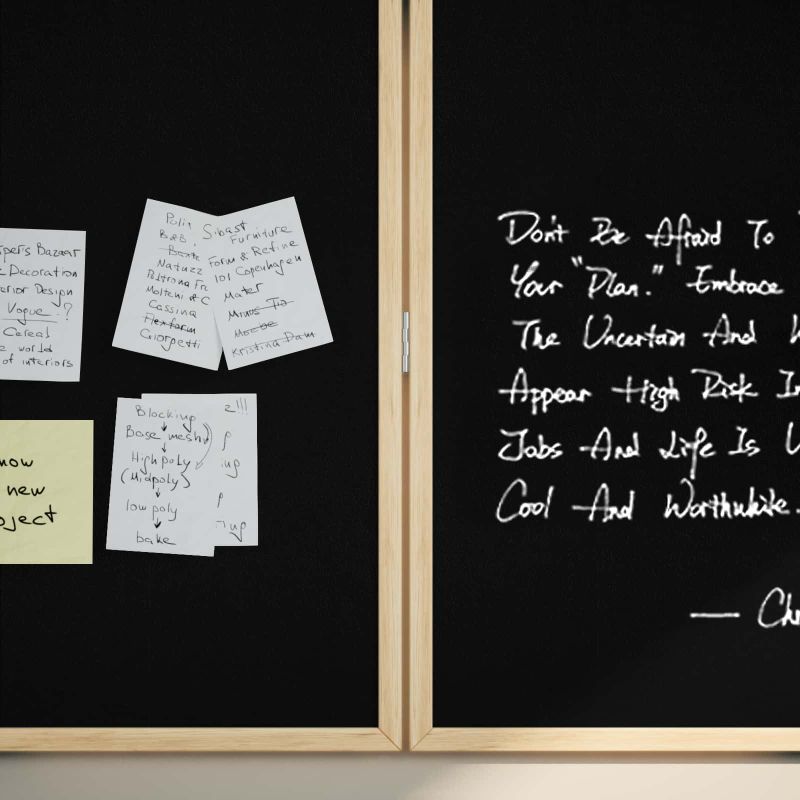 pers Bazaar
Decoration
erior Design
Vogue ?
Cereal
e world
of interiors
now
new
oject
B&B
Natuzz
Poltrona Fr
Molteni & C
Cassina
Flexform
Giorgetti
Sibast
Furniture
Form & Refine
101 Copenhagen
Mater
Kristina Dam
Blocking
Base mesh
High poly
(Midpoly)
low poly
bake
z!!!
p
ing
p
ing
Don't Be Afraid To
Your "Plan." Embrace
The Uncertain And
Appear High Risk In
Jobs And Life Is
Cool And Worthwhile.
— Ch